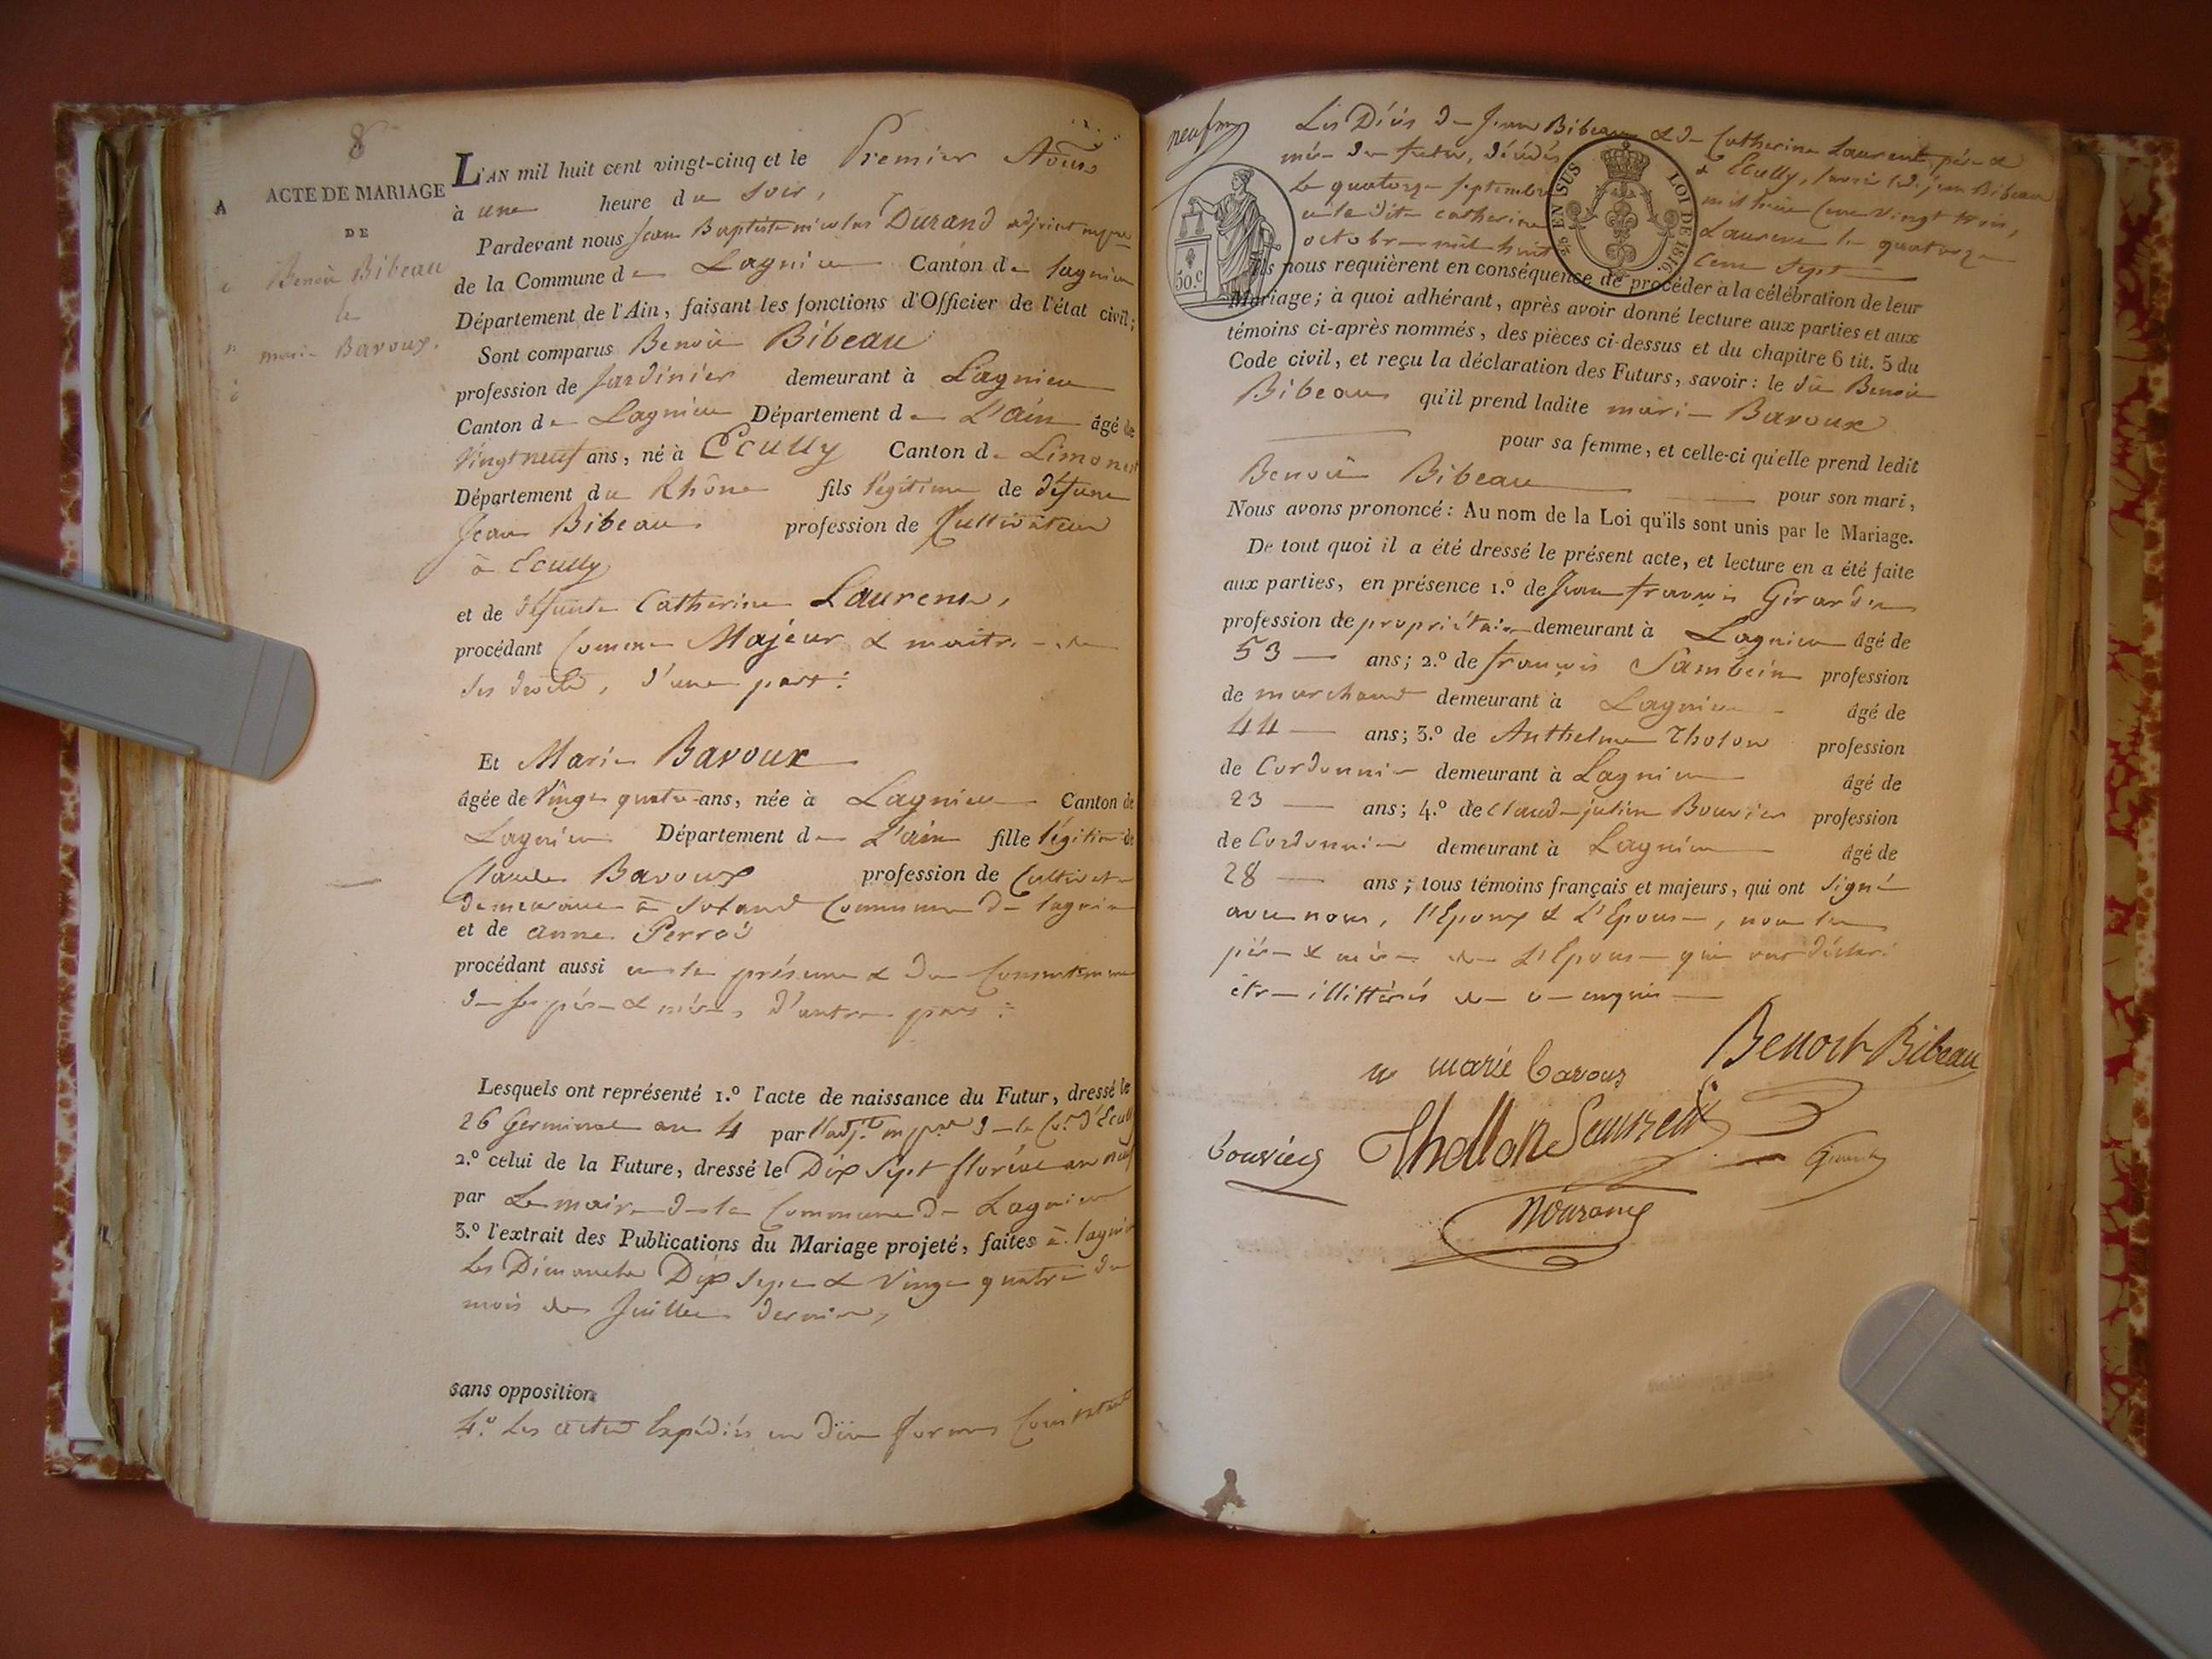 8
ACTE DE MARIAGE
DE
Benoit Bibeau
et
marie Bavoux.
L'AN mil huit cent vingt-cinq et le Premier Aout
à une heure du soir,
Pardevant nous Jean Baptiste nicolas Durand adjoint
de la Commune de Lagnieu Canton de lagnieu
Département de l'Ain, faisant les fonctions d'Officier de l'état civil;
Sont comparus Benoit Bibeau
profession de Jardinier demeurant à Lagnieu
Canton de Lagnieu Département de L'Ain âgé de
Vingt neuf ans, né à Ecully Canton de Limonest
Département du Rhône fils légitime de défunt
Jean Bibeau profession de Cultivateur
à Ecully
et de défunte Catherine Laurent,
procédant Comme Majeur & maitre de
ses droits, d'une part:
Et Marie Bavoux
âgée de Vingt quatre ans, née à Lagnieu Canton de
Lagnieu Département de L'ain fille légitime de
Claude Bavoux profession de Cultivateur
demeurant à Commune de lagnieu
et de anne
procédant aussi en la présence & du Consentement
de ses père & mère, d'autre part:
Lesquels ont représenté 1.º l'acte de naissance du Futur, dressé le
26 Germinal an 4 par de la d'Ecully
2.º celui de la Future, dressé le Dix Sept floréal an neuf
par Le maire de la Commune de Lagnieu
3.º l'extrait des Publications du Mariage projeté, faites à lagnieu
les Dimanches Dix Sept & Vingt quatre du
mois de Juillet dernier,
sans opposition
4.º les actes Expédiés en due forme Constatant
neuf
Les Décès de Jean Bibeau & de Catherine Laurent, père &
mère du futur, décédés à Ecully, savoir led. jean Bibeau
Le quatorze Septembre mil huit Cent vingt trois,
et la dite catherine Laurent le quatorze
octobre mil huit Cent Sept
50.c
EN SUS
LOI DE 1816
Ils nous requièrent en conséquence de procéder à la célébration de leur
Mariage; à quoi adhérant, après avoir donné lecture aux parties et aux
témoins ci-après nommés, des pièces ci-dessus et du chapitre 6 tit. 5 du
Code civil, et reçu la déclaration des Futurs, savoir: le dit Benoit
Bibeau qu'il prend ladite marie Bavoux
pour sa femme, et celle-ci qu'elle prend ledit
Benoit Bibeau pour son mari,
Nous avons prononcé: Au nom de la Loi qu'ils sont unis par le Mariage.
De tout quoi il a été dressé le présent acte, et lecture en a été faite
aux parties, en présence 1.º de Jean françois
profession de propriétaire demeurant à Lagnieu âgé de
53 ans; 2.º de françois profession
de marchand demeurant à Lagnieu âgé de
44 ans; 3.º de Anthelme Tholon profession
de Cordonnier demeurant à Lagnieu âgé de
23 ans; 4.º de Claude julien Bouvier profession
de Cordonnier demeurant à Lagnieu âgé de
28 ans; tous témoins français et majeurs, qui ont signé
avec nous, l'Epoux & L'Epouse, non les
père & mère de L'Epouse qui ont déclaré
être illittérés de ce enquis
marie bavoux Benoit Bibeau
bouvier Thollon